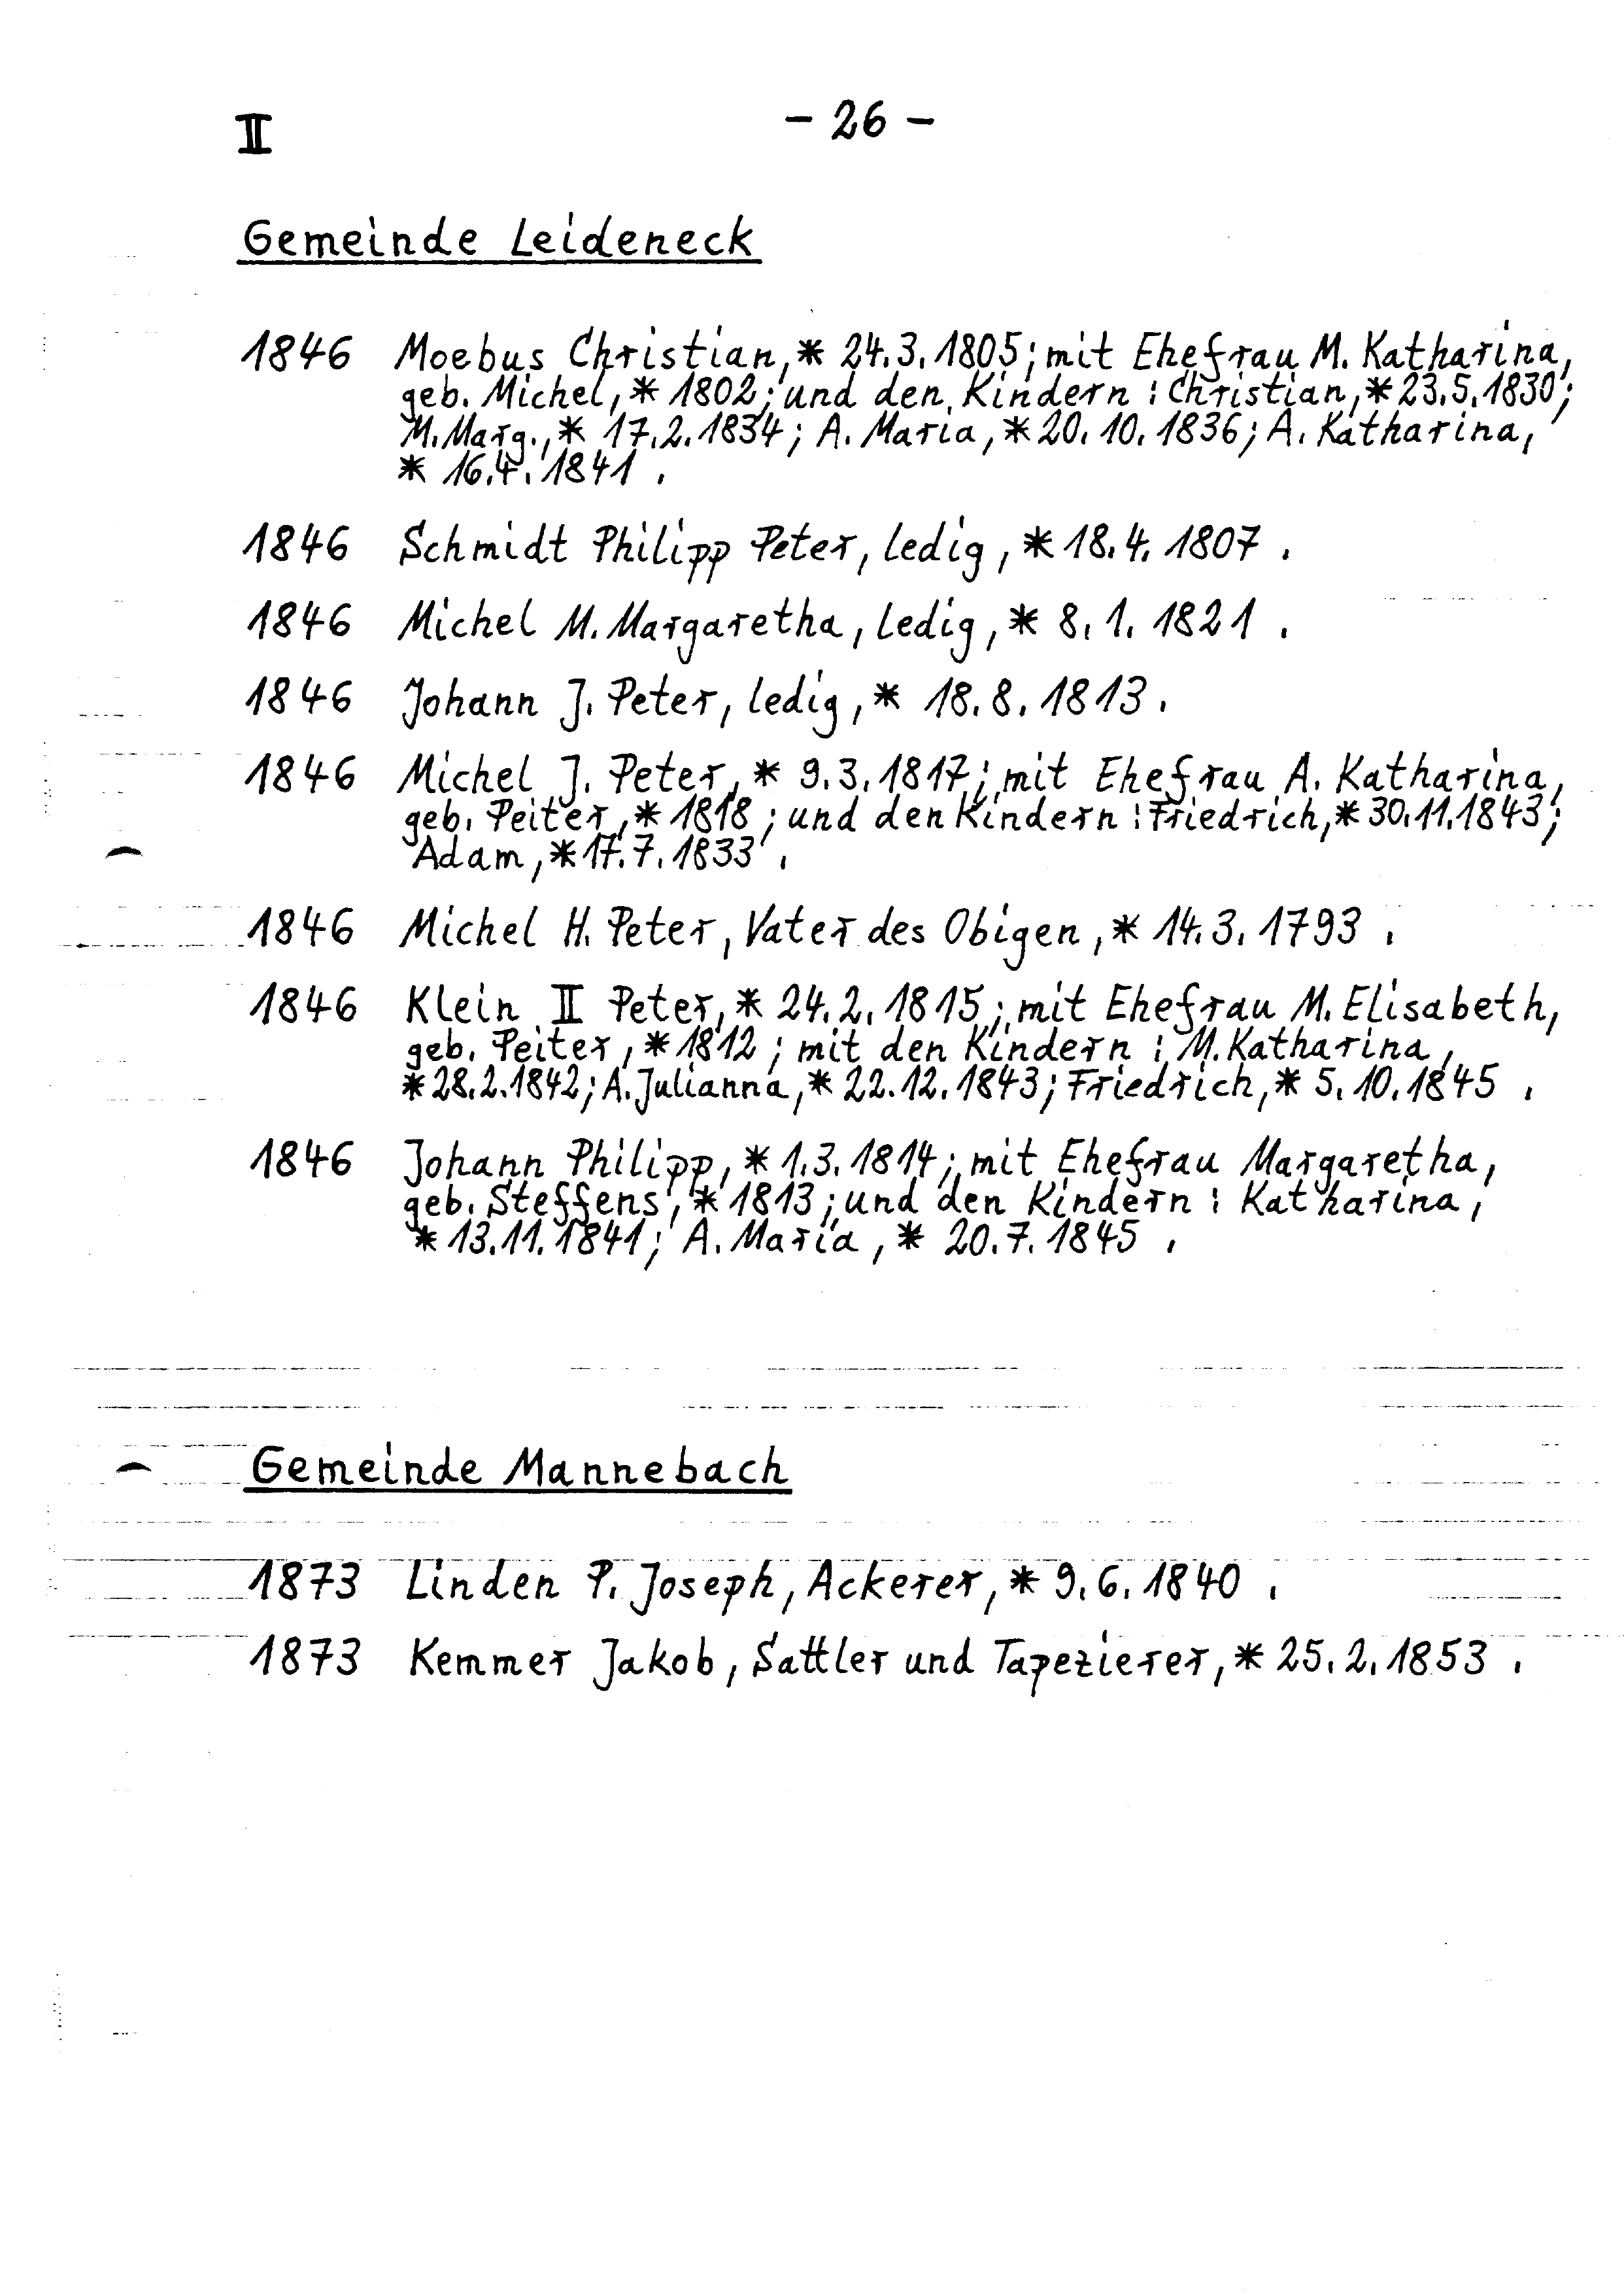 II
- 26 -
Gemeinde Leideneck
1846 Moebus Christian, * 24.3.1805; mit Ehefrau M. Katharina,
geb. Michel, * 1802; und den Kindern: Christian, * 23.5.1830;
M. Marg., * 17.2.1834; A. Maria, * 20.10.1836; A. Katharina,
* 16.4.1841.
1846 Schmidt Philipp Peter, ledig, * 18.4.1807.
1846 Michel M. Margaretha, ledig, * 8.1.1821.
1846 Johann J. Peter, ledig, * 18.8.1813.
1846 Michel J. Peter, * 9.3.1817; mit Ehefrau A. Katharina,
geb. Peiter, * 1818; und den Kindern: Friedrich, * 30.11.1843;
Adam, * 17.7.1833.
1846 Michel H. Peter, Vater des Obigen, * 14.3.1793.
1846 Klein II Peter, * 24.2.1815; mit Ehefrau M. Elisabeth,
geb. Peiter, * 1812; mit den Kindern: M. Katharina,
* 28.2.1842; A. Julianna, * 22.12.1843; Friedrich, * 5.10.1845.
1846 Johann Philipp, * 1.3.1814; mit Ehefrau Margaretha,
geb. Steffens, * 1813; und den Kindern: Katharina,
* 13.11.1841; A. Maria, * 20.7.1845.
Gemeinde Mannebach
1873 Linden P. Joseph, Ackerer, * 9.6.1840.
1873 Kemmer Jakob, Sattler und Tapezierer, * 25.2.1853.